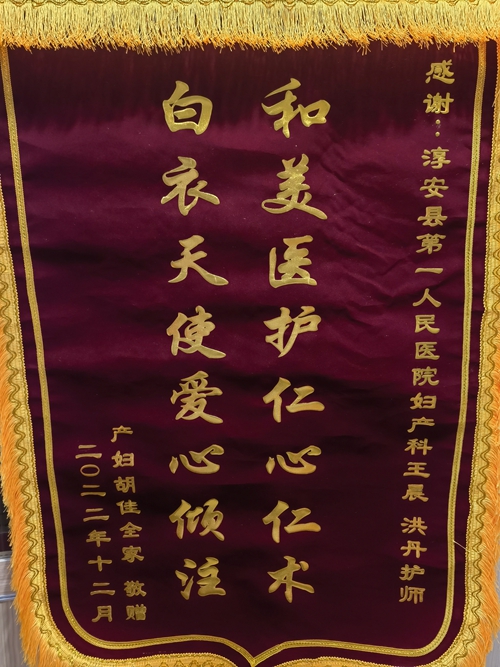 感谢：淳安县第一人民医院妇产科王晨 洪丹护师
和美医护仁心仁术
白衣天使爱心倾注
产妇胡佳全家 敬赠
二〇二二年十二月